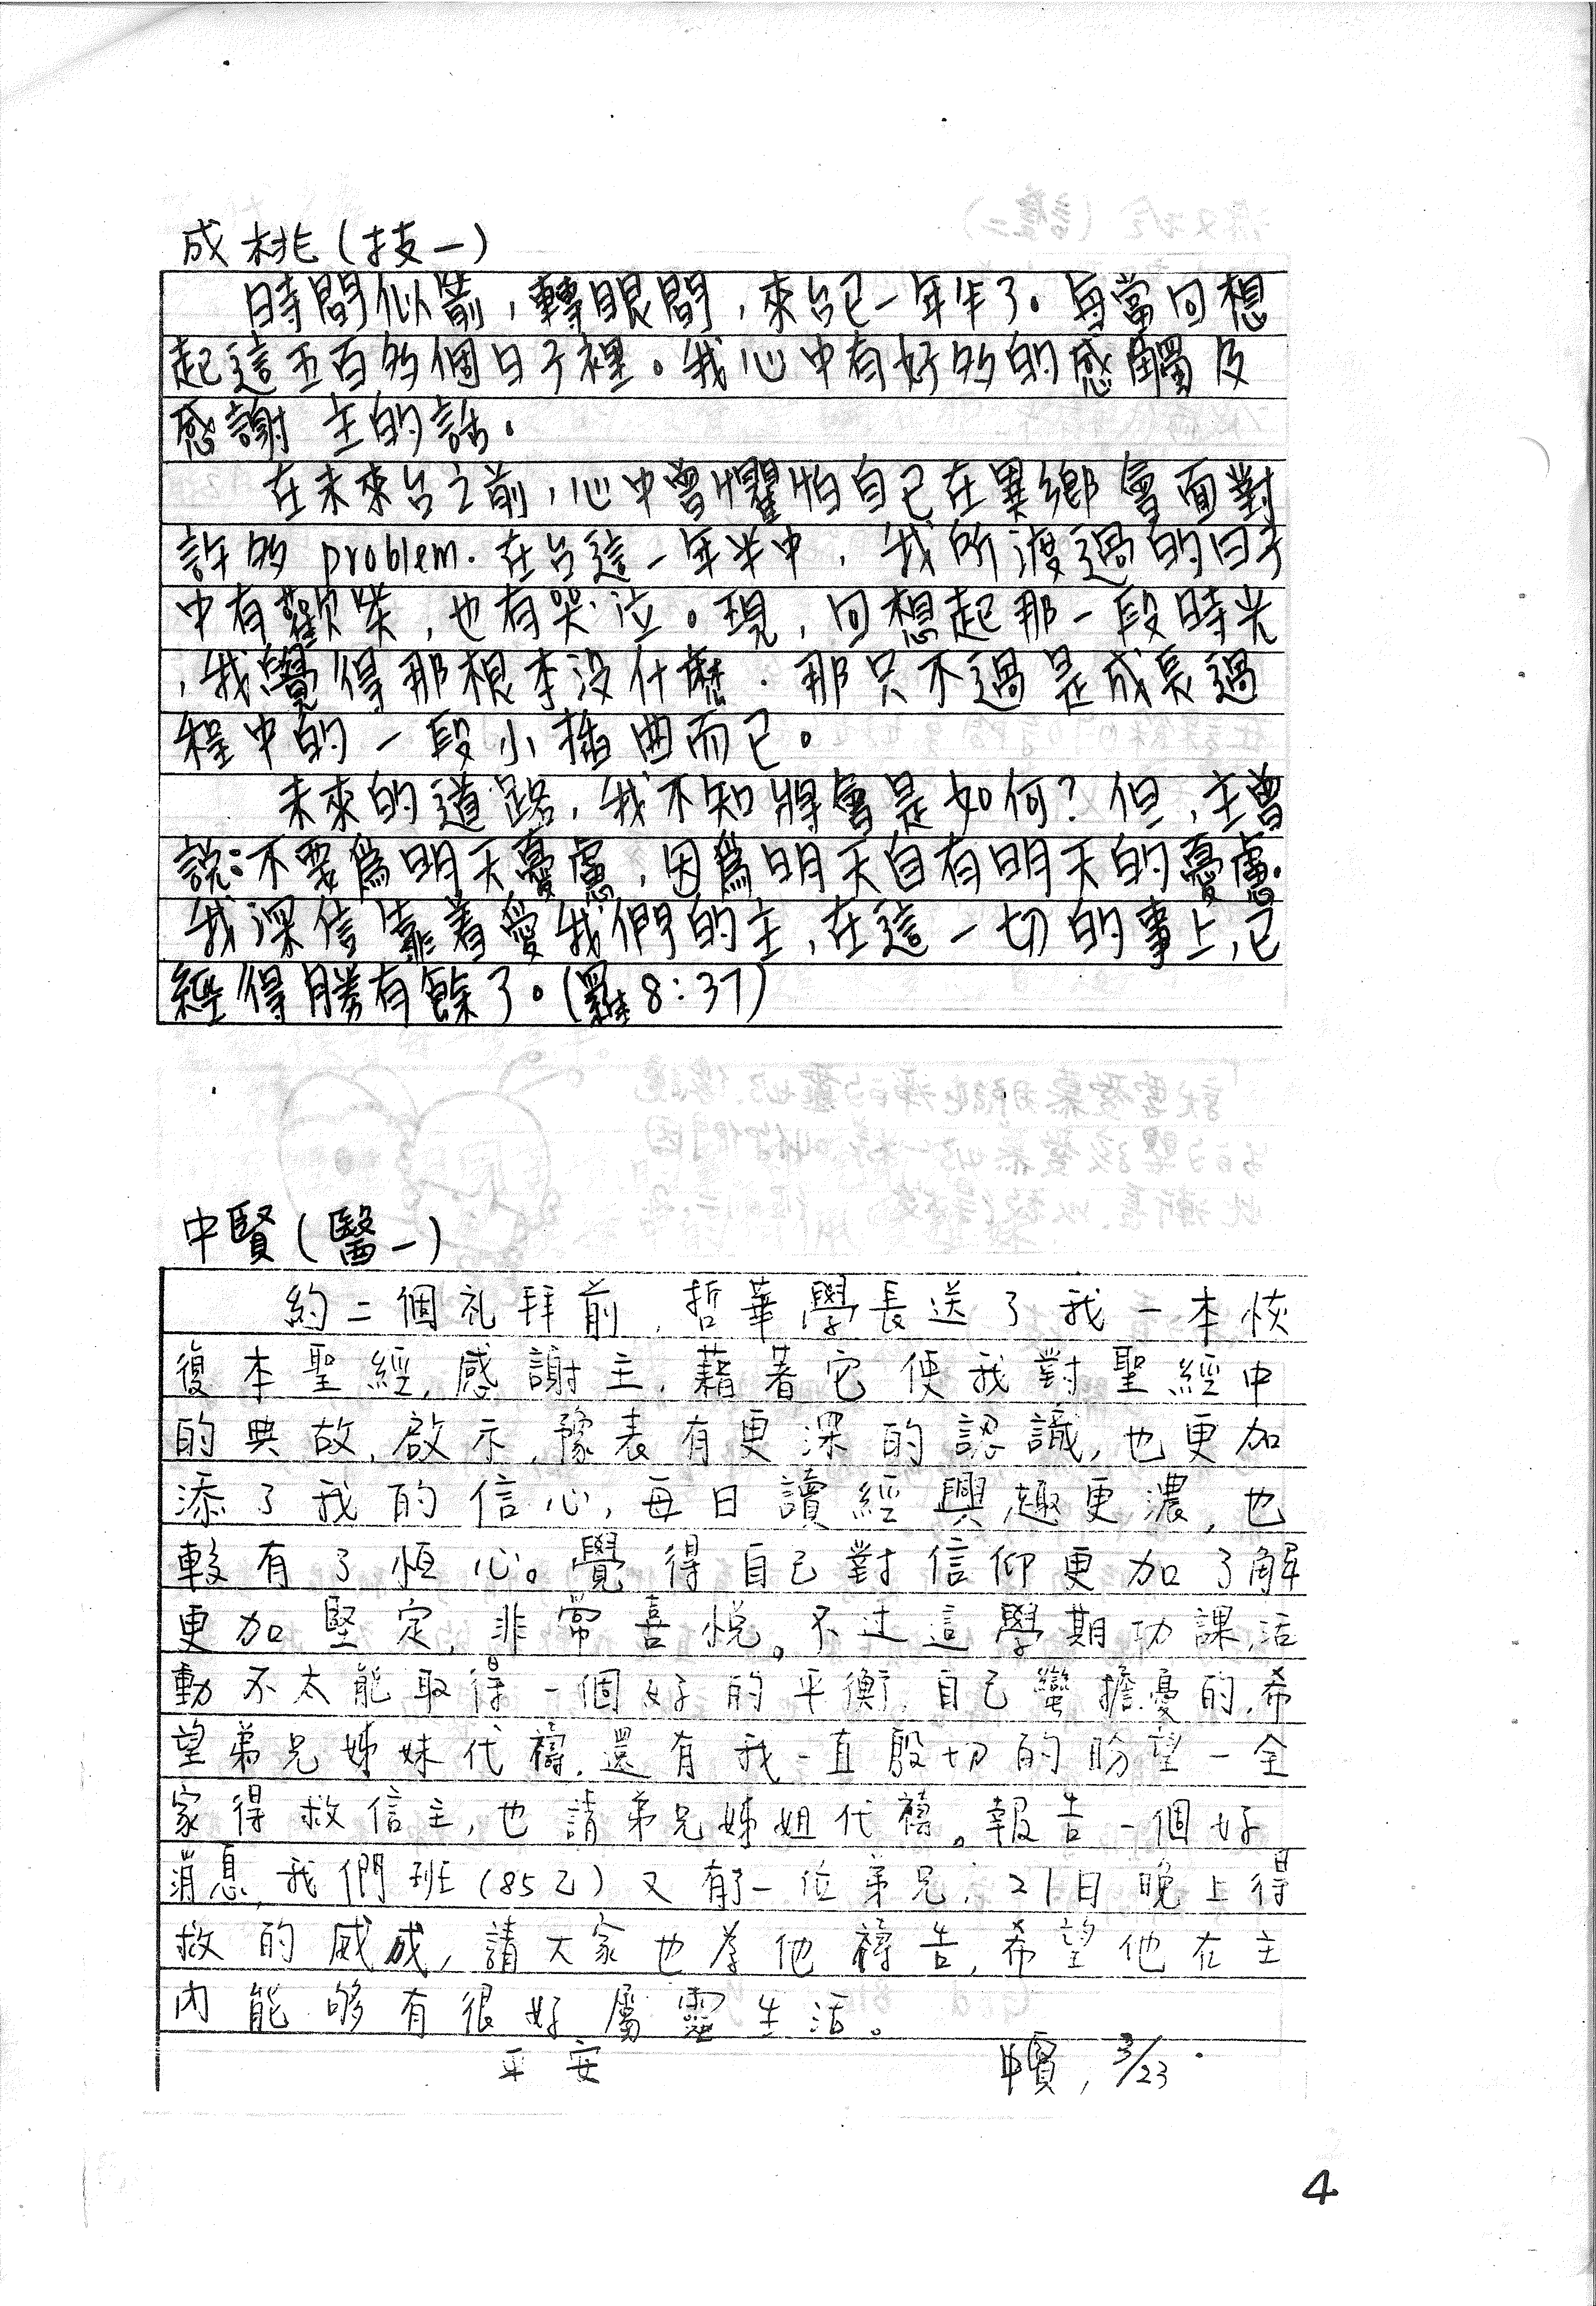 成桃(技一)
時間似箭,轉眼間,來台已一年半了。每當回想
起這五百多個日子裡。我心中有好多的感觸及
感謝 主的話.
在未來台之前,心中曾懼怕自己在異鄉會面對
許多 problem. 在台這一年半中,我所渡過的日子
中有歡笑,也有哭泣。現,回想起那一段時光
,我覺得那根本沒什麼.那只不過是成長過
程中的一段小插曲而已。
未來的道路,我不知將會是如何?但,主曾
說:不要為明天憂慮,因為明天自有明天的憂慮.
我深信靠着愛我們的主,在這一切的事上,已
經得勝有餘了。(羅8:37)
中賢(醫一)
約二個礼拜前,哲華學長送了我一本恢
復本聖經,感謝主,藉著它使我對聖經中
的典故,啟示,豫表有更深的認識,也更加
添了我的信心,每日讀經興趣更濃,也
較有了恒心。覺得自己對信仰更加了解
更加堅定,非常喜悅。不过這學期功課,活
動不太能取得一個好的平衡,自己蠻擔憂的,希
望弟兄姊妹代禱.還有我一直殷切的盼望一全
家得救信主,也請弟兄姊姐代禱。報告一個好
消息,我們班(85乙)又有了一位弟兄,21日晚上得
救的威成,請大家也為他禱告,希望他在主
內能够有很好屬靈生活。
平安 中賢, 3/23
4